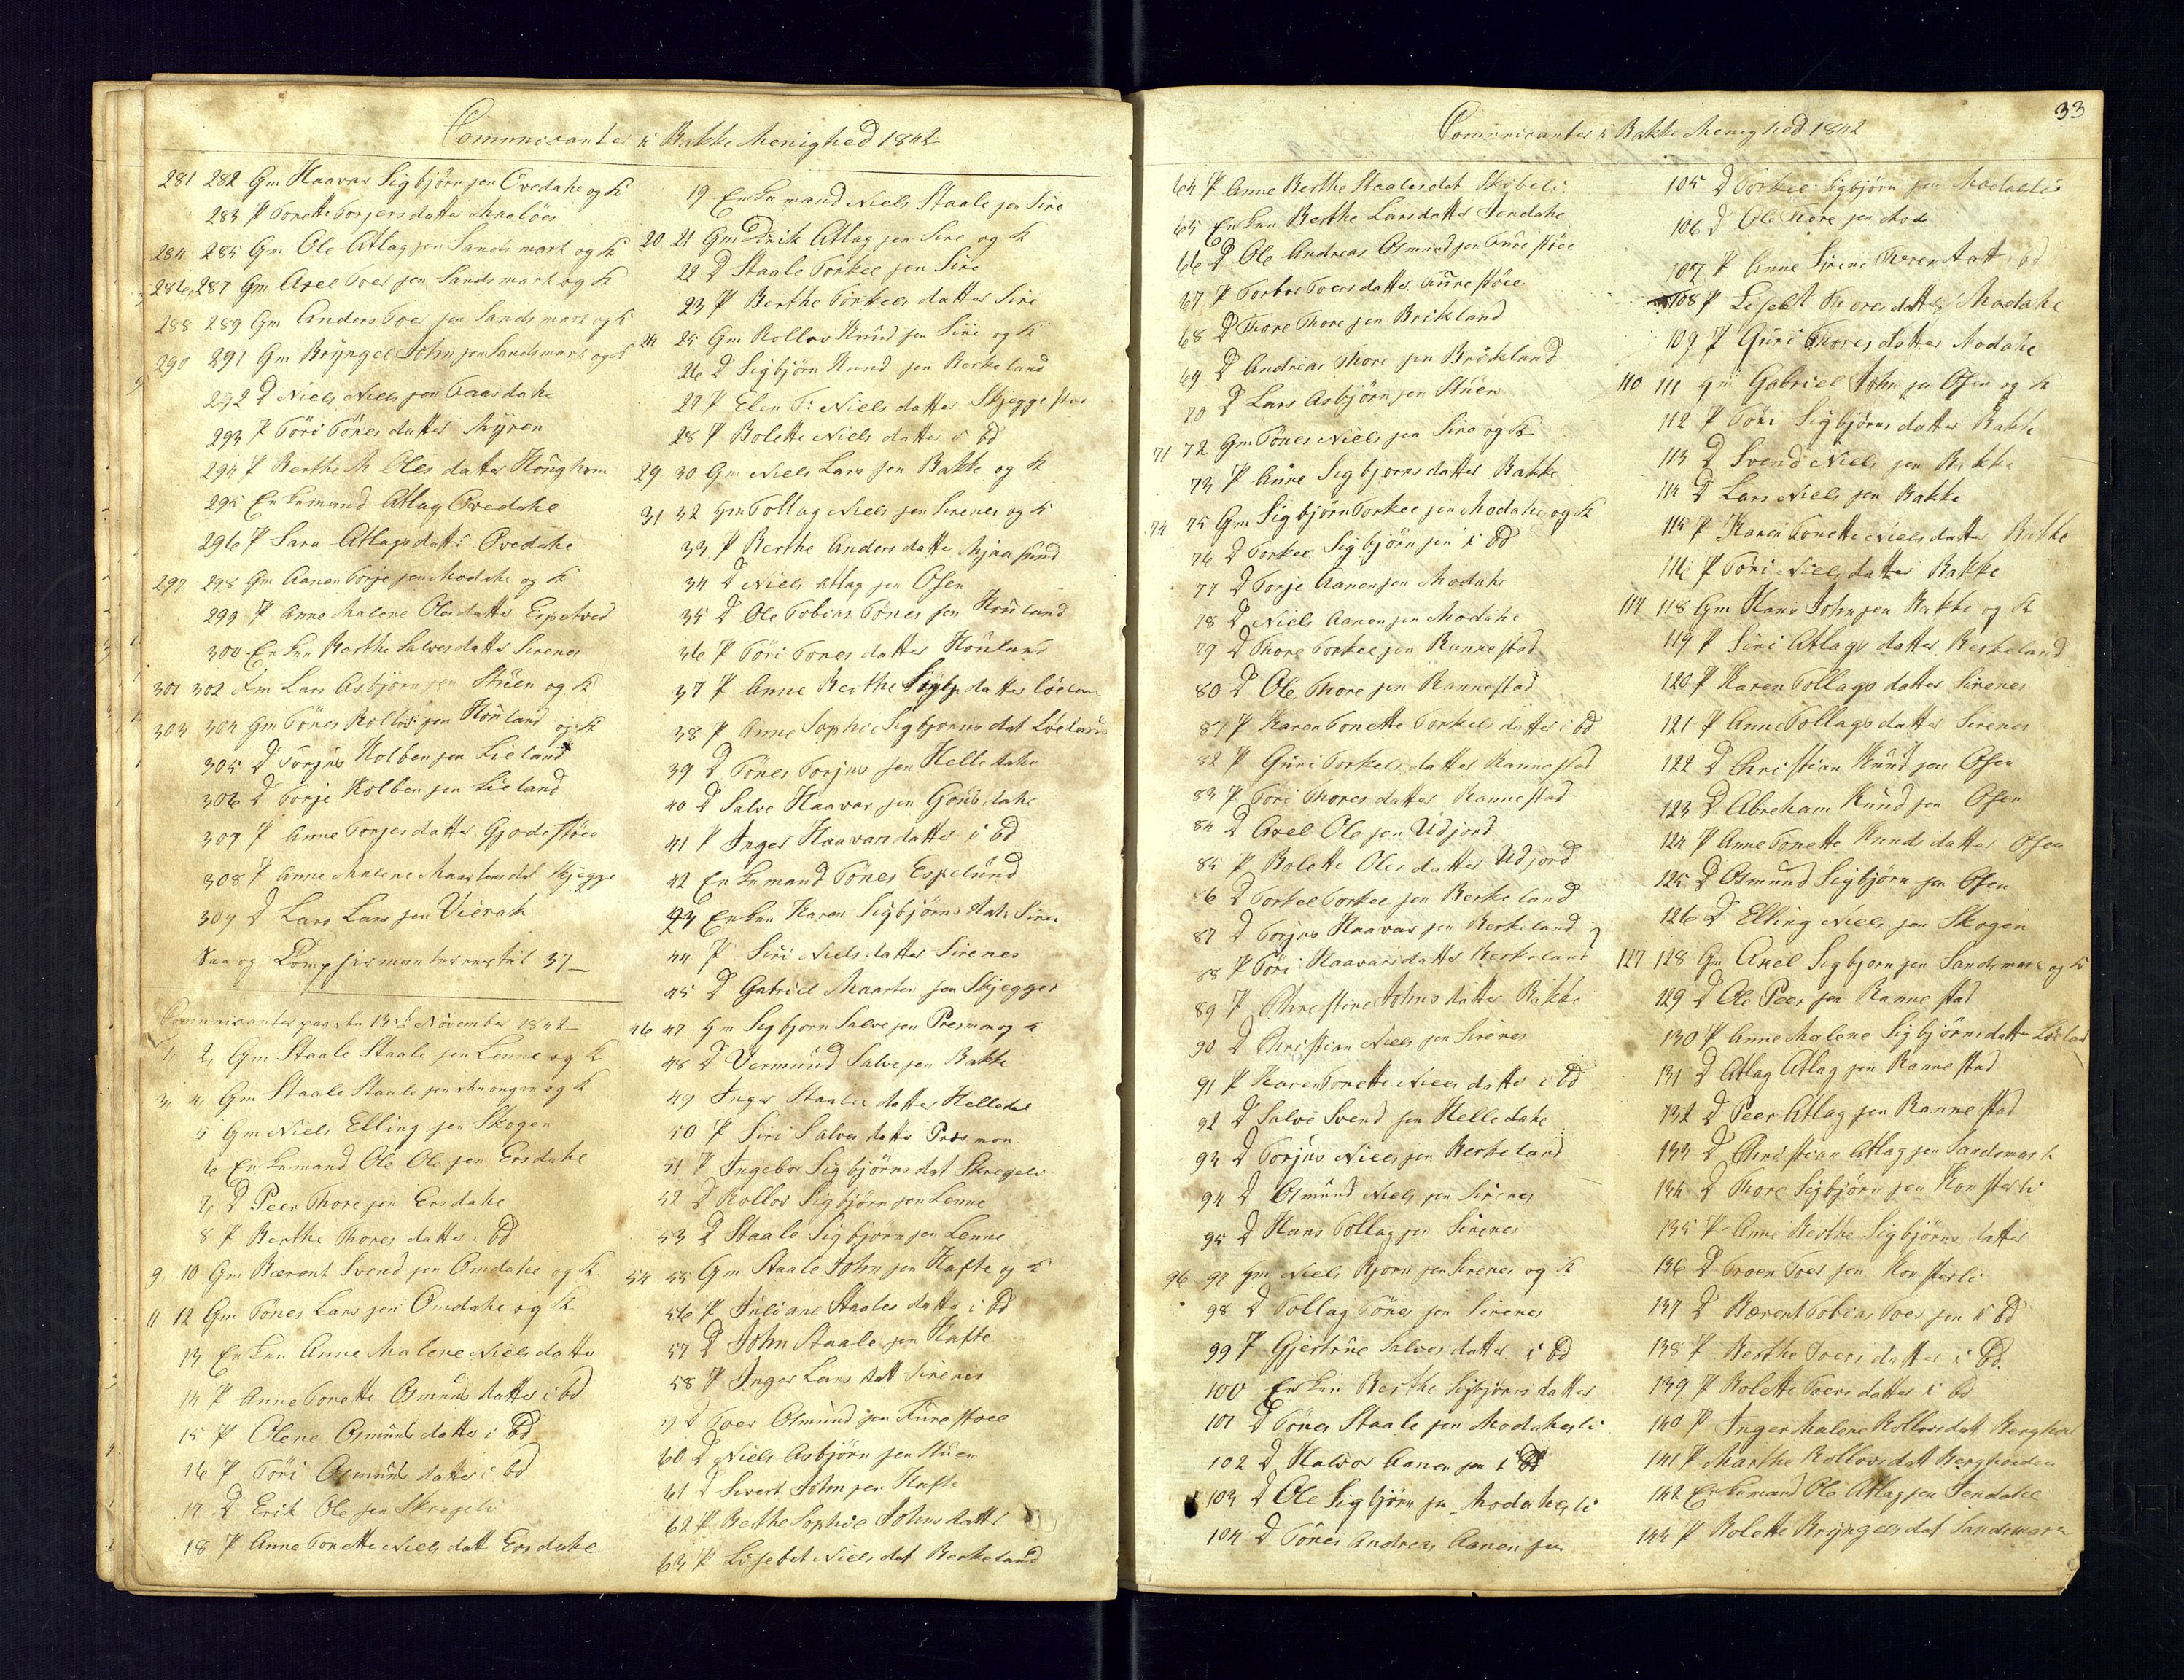 Communicanter i Bakke Menighed 1842
281 282 Gm Haavar Sigbjörn sen Ovedahl og K
283 P Tonette Torjersdatter Maaløes
284 285 Gm Ole Atlag sen Sandsmark og K
286, 287 Gm Axel Toer sen Sandsmark og K
288 289 Gm Anders Toer sen Sandsmark og K
290 291 Gm Bryngel John sen Sandsmark og K
292 D Niels Niels sen Faasdahl
293 P Töri Tönes datter Myren
294 P Berthe M Oles datter Houghom
295 Enkemand Atlag Ovedahl
296 P Sara Atlags datt: Ovedahl
297 298 Gm Aanen Torje sen Modahl og K
299 P Anne Malene Oles datter Espetved
300 Enken Berthe Salves datter Sirenes
301 302 Gm Lars Asbjörn sen Stuen og K
303 304 Gm Tönes Rollev sen Houland og K
305 D Torjus Kolben sen Lieland
306 D Torje Kolben sen Lieland
307 P Anne Torjes datter Gjedestöe
308 P Anne Malene Maartens dat Skjegge
309 D Lars Lars sen Vierak
Saa og Compfirmanternes tal 37
Communicanter paa den 13de November 1842
1, 2, Gm Staale Staale sen Lenne og K
3, 4, Gm Staale Staale sen og K
5 Gm Niels Elling sen Skogen
6 Enkemand Ole Ole sen Ersdahl
7, D Peer Thore sen Ersdahl
8 P Berthe Thores datter i bd
9, 10 Gm Bærent Svend sen Omdahl og K
11 12 Gm Tönes Lars sen Omdahl og K
13 Enken Anne Malene Niels datter
14 P Anne Tonette Osmunds datter i bd
15 P Olene Osmunds datter i bd
16 P Töri Osmunds datter i bd
17 D Erik Ole sen Skregeli
18 P Anne Tonette Niels datt Ersdahl
19 Enkemand Niels Staale sen Sire
20 21 Gm Dirik Atlag sen Sire og K
22 D Staale Torkel sen Sire
23 P Berthe Torkels datter Sire
24 25 Gm Rollov Knud sen Sire og K
26 D Sigbjörn Knud sen Berkeland
27 P Elen T: Niels datter Skjeggestad
28 P Bolette Niels datter i bd
29 30 Gm Niels Lars sen Bakke og K
31 32 Gm Tollag Niels sen Sirenes og K
33 P Berthe Anders datter Mjaasund
34 D Niels Atlag sen Osen
35 D Ole Tobias Tönes sen Houland
36 P Töri Tones datter Houland
37 P Anne Berthe Sigbj datter Löeland
38 P Anne Sophie Sigbjorns dat Löeland
39 D Tönes Torjus sen Helledahl
40 D Salve Haavar sen Gousdahl
41 P Inger Haavars datter i bd
42 Enkemand Tönes Espelund
43 Enken Karen Sigbjörns datr Sirenes
44 P Siri Niels datter Sirenes
45 D Gabriel Maarten sen Skjegges
46 47 Gm Sigbjorn Salve sen Presmon og K
48 D Vermund Salve sen Bakke
49 Inger Staales datter Helledal
50 P Siri Salves datter Præsmon
51 P Ingebor Sigbjörns dat Skregeli
52 D Rollov Sigbjörn sen Lenne
53 D Staale Sigbjörn sen Lenne
54 55 Gm Staale John sen Kafte og K
56 P Juliane Staales datter i bd
57 D John Staale sen Kafte
58 P Inger Lars datt Sirenes
59 D Toer Osmund sen Furestöel
60 D Niels Asbjörn sen Stuen
61 D Sivert John sen Kafte
62 P Berthe Sophie Johns datter
63 P Lisebet Niels dat Berkeland
33
Communicanter i Bakke Menighed 1842
64 P Anne Berthe Staales dat Skibeli
65 Enken Berthe Lars datter Jendahl
66 D Ole Andreas Osmund sen Furestöel
67 P Torbor Toers datter Furestöel
68 D Thore Thore sen Brekland
69 D Andreas Thore sen Brekland
70 D Lars Asbjörn sen Stuen
71 72 Gm Tönes Niels sen Sire og K
73 P Anne Sigbjorns datter Bakke
74 75 Gm Sigbjörn Torkel sen Modahl og K
76 D Torkel Sigbjörn sen i bd
77 D Torje Aanen sen Modahl
78 D Niels Aanen sen Modahl
79 D Thore Torkel sen Rannestad
80 D Ole Thore sen Rannestad
81 P Karen Tonette Torkels datter i bd
82 P Guri Torkels datter Rannestad
83 P Töri Thores datter Rannestad
84 D Axel Ole sen Udjord
85 P Bolette Oles datter Udjord
86 D Torkel Torkel sen Berkeland
87 D Torjus Haavar sen Berkeland
88 P Töri Haavars datter Berkeland
89 P Christine Johns datter Bakke
90 D Christian Niels sen Sirenes
91 P Karen Tonette Niels datter i bd
92 D Salve Svend sen Helledahl
93 D Torjus Niels sen Berkeland
94 D Osmund Niels sen Sirenes
95 D Hans Tollag sen Sirenes
96 97 Gm Niels Bjorn sen Sirenes og K
98 D Tollag Tönes sen Sirenes
99 P Gjertrue Salves datter i bd
100 Enken Berthe Sigbjörns datter
101 D Tönes Staale sen Modahlsli
102 D Halvor Aanen sen i bd
103 D Ole Sigbjörn sen Modahlsli
104 D Tönes Andreas Aanen sen
105 D Torkel Sigbjörn sen Modalsli
106 D Ole Thore sen Mode
107 P Anne Sirene Thores datt bd
108 P Lisebt Thores datter Modahl
109 P Guri Thores datter Modahl
110 111 Gm Gabriel John sen Osen og K
112 P Töri Sigbjörns datter Bakke
113 D Svend Niels sen Bakke
114 D Lars Niels sen Bakke
115 P Karen Tonette Niels datter Bakke
116 P Töri Niels datter Bakke
117 118 Gm Hans John sen Bakke og K
119 P Siri Atlags datter Berkeland
120 P Karen Tollags datter Sirenes
121 P Anne Tollags datter Sirenes
122 D Christian Knud sen Osen
123 D Abraham Knud sen Osen
124 P Anne Tonette Knuds datter Osen
125 D Osmund Sigbjörn sen Osen
126 D Elling Niels sen Skogen
127 128 Gm Axel Sigbjorn sen Sandsmark og K
129 D Ole Peer sen Rannestad
130 P Anne Malene Sigbjörns datter Löeland
131 D Atlag Atlag sen Rannestad
132 D Peer Atlag sen Rannestad
133 D Christian Atlag sen Sandsmark
134 D Thore Sigbjörn sen Konsterli
135 P Anne Berthe Sigbjörns datter
136 D Troen Toer sen Konsterli
137 D Bærent Tobias Toer sen i bd
138 P Berthe Toers datter i bd
139 P Bolette Toers datter i bd
140 P Inger Malene Rollovs datt
141 P Marthe Rollovs datt
142 Enkemand Ole Atlag sen Jendahl
143 P Bolette Bryngels dat Sandsmark